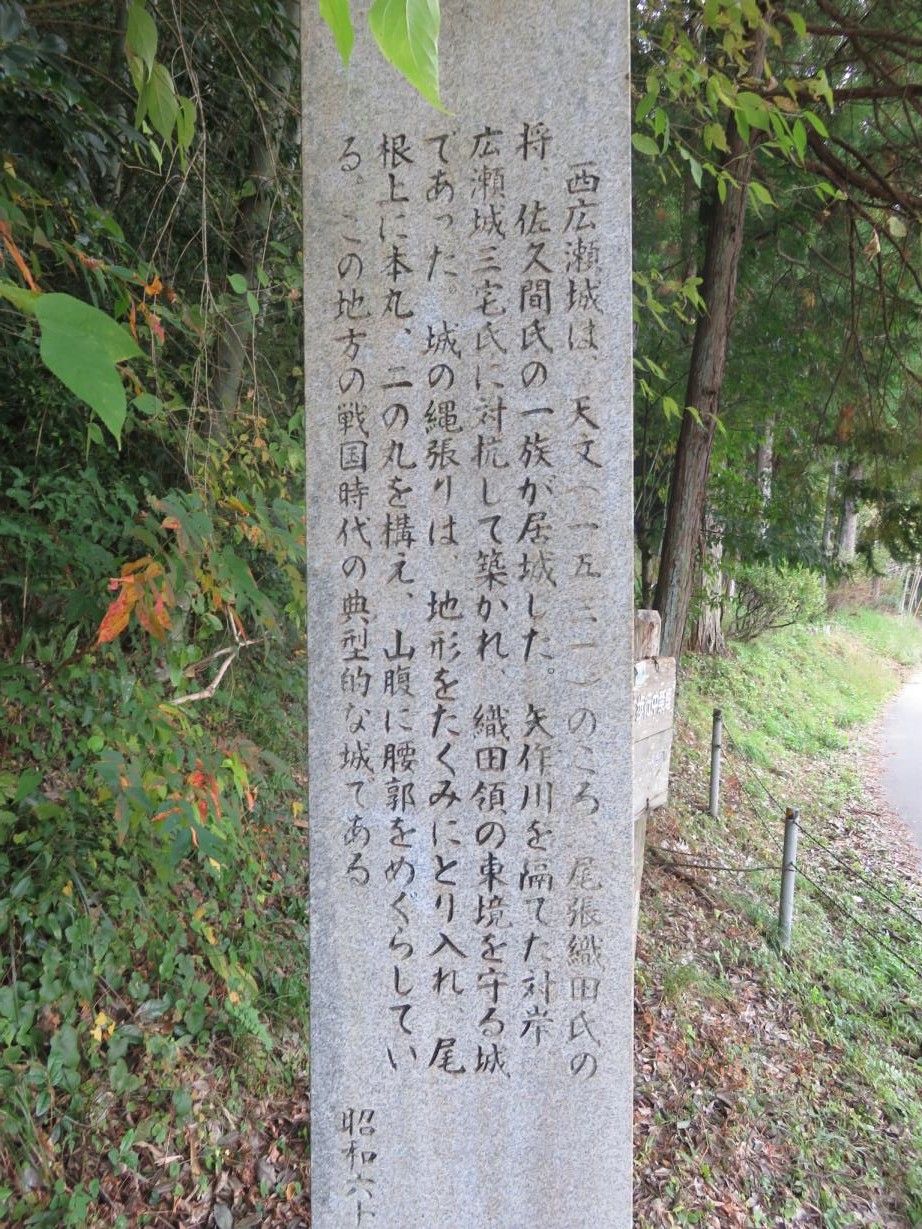 西広瀬城は、天文(一五三一)のころ、尾張織田氏の
将、佐久間氏の一族が居城した。矢作川を隔てた対岸
広瀬城三宅氏に対抗して築かれ、織田領の東境を守る城
であった。城の縄張りは、地形をたくみにとり入れ、尾
根上に本丸、二の丸を構え、山腹に腰郭をめぐらしてい
る。この地方の戦国時代の典型的な城である
昭和六十